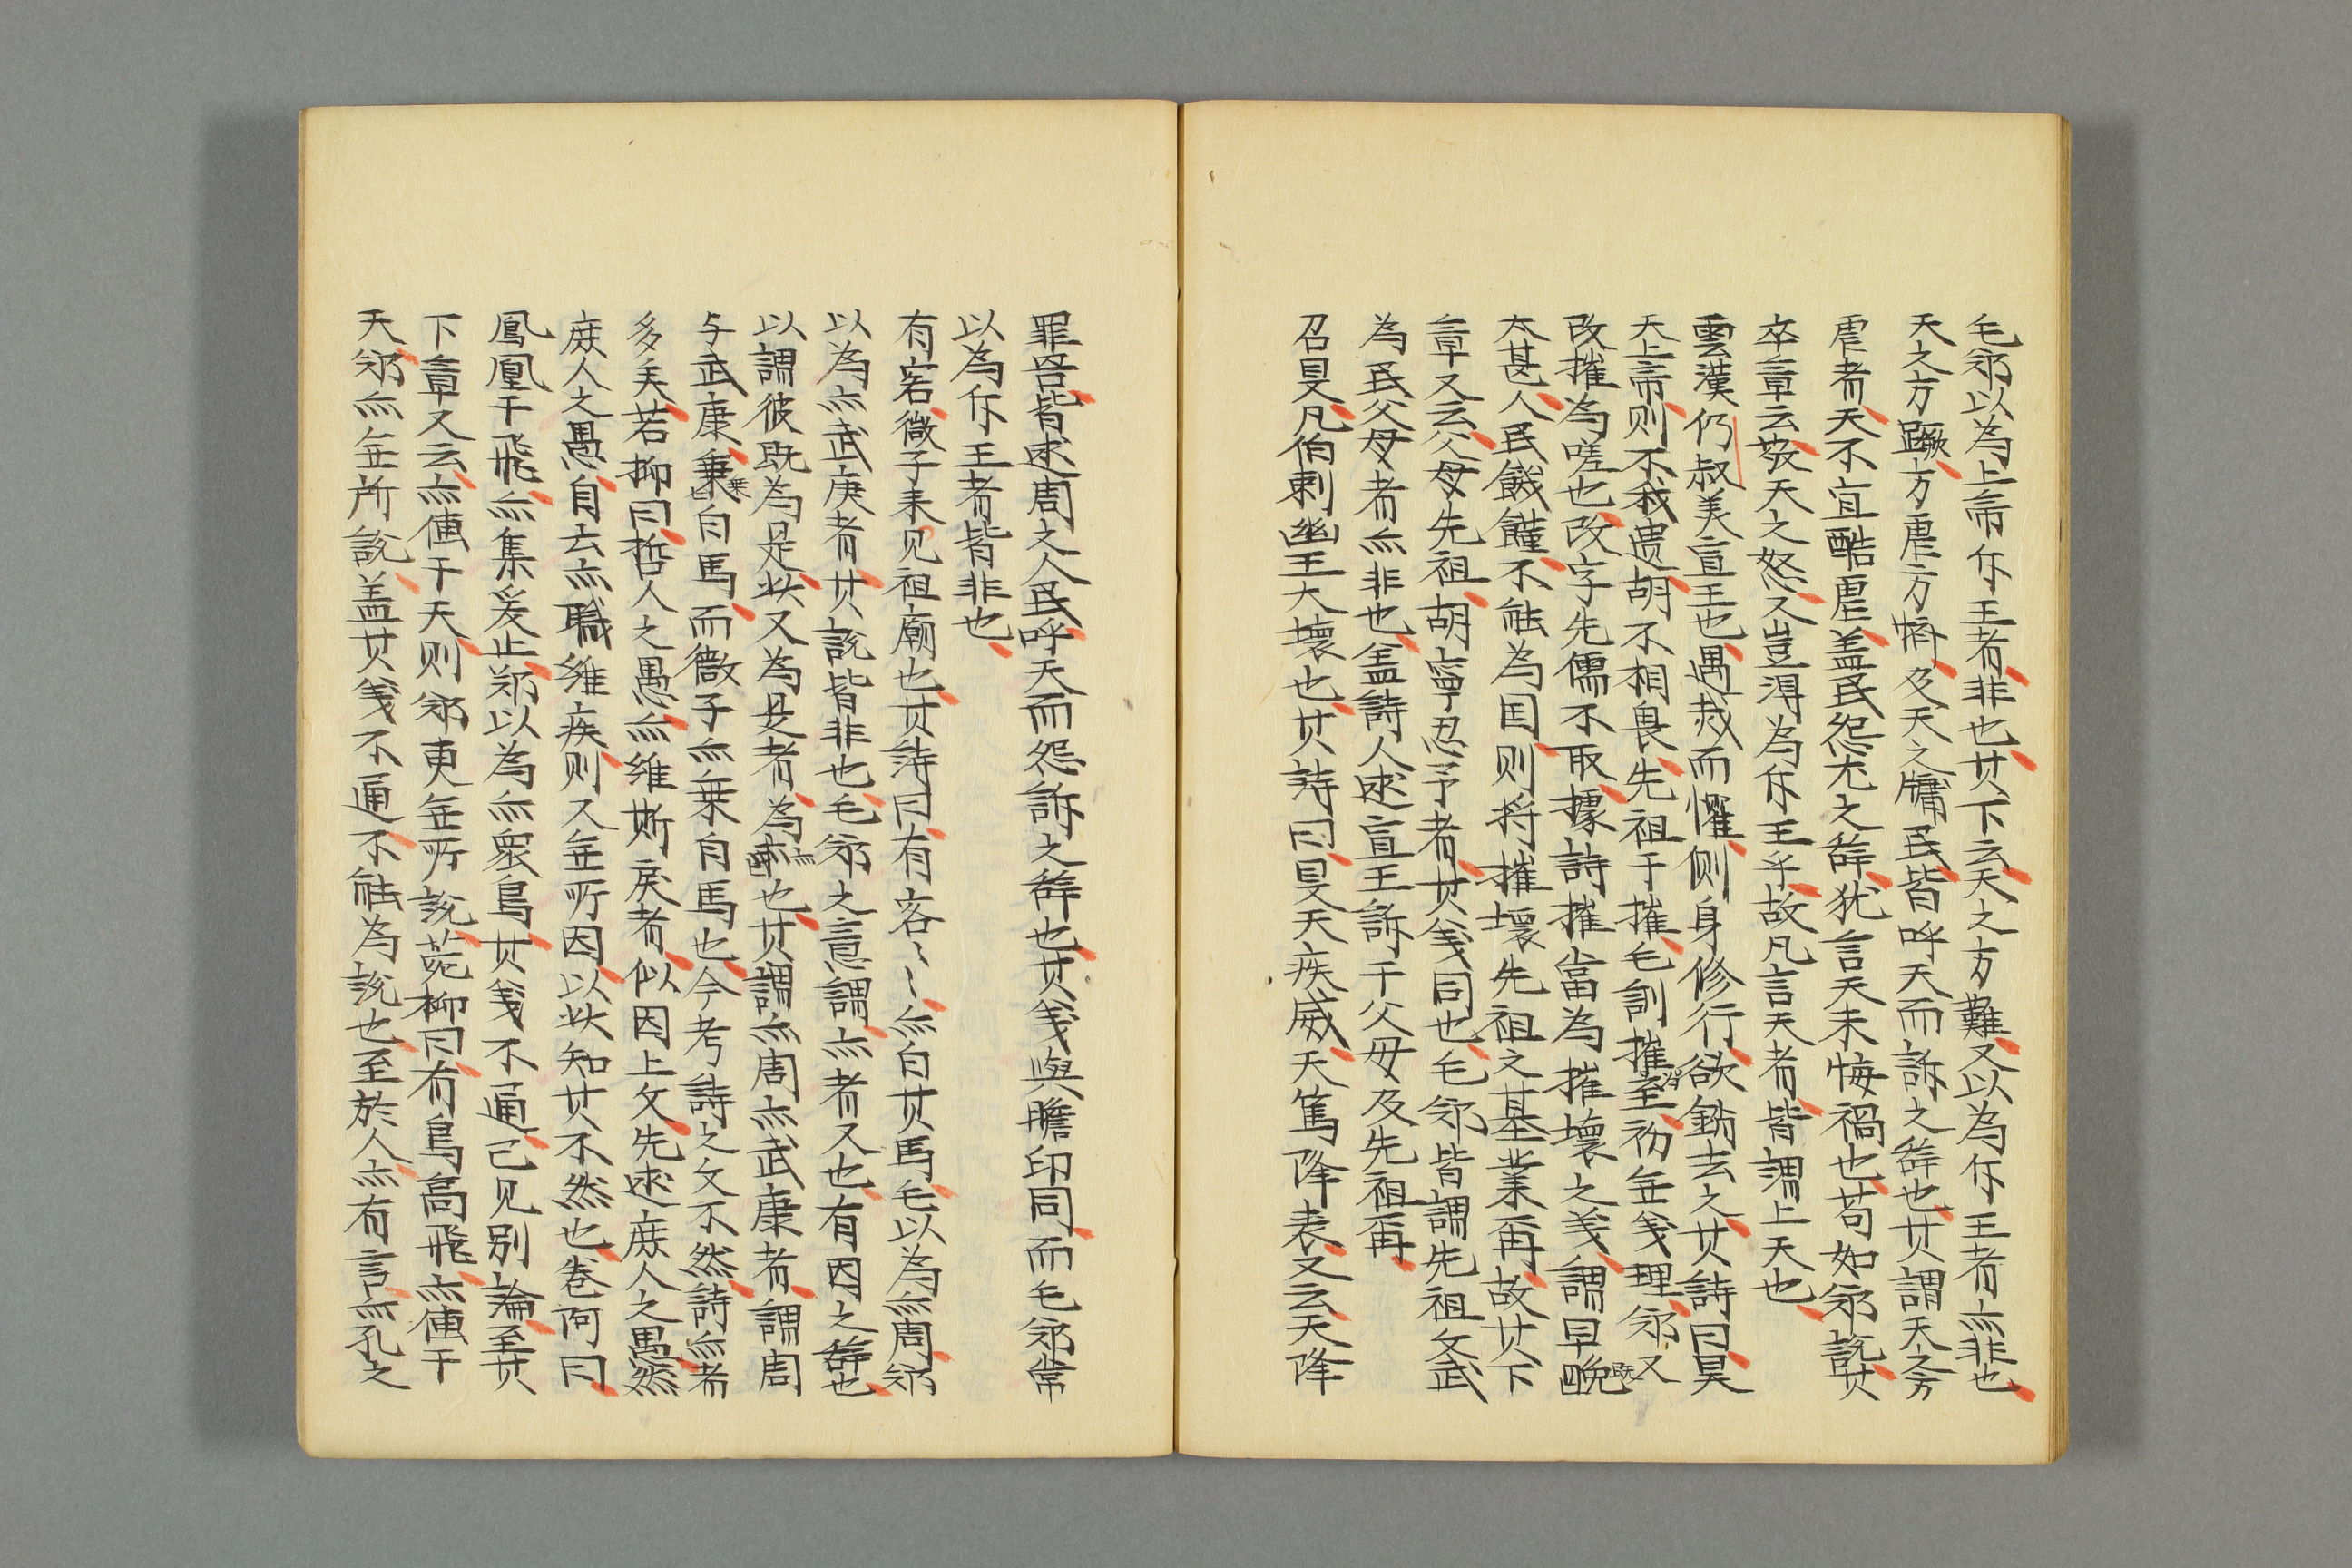 毛郑以為上帝斥王者非也其下云天之方難又以為斥王者亦非也
天之方蹶方虐方懠及天之牖民皆呼天而訴之辞也其謂天之方
虐者天不宜酷虐盖民怨尤之辞犹言天未悔禍也苟如郑説其
卒章云敬天之怒又豈淂為斥王乎故凡言天者皆謂上天也
雲漢仍叔美宣王也遇烖而懼侧身修行欲銷去之其詩曰昊
天上帝则不我遗胡不相畏先祖于摧毛訓摧至初無義理郑又
改摧為嗟也改字先儒不取據詩摧當為摧壞之義謂旱既
太甚人民饑饉不能為国则将摧壞先祖之基業再故其下
章又云父母先祖胡寧忍予者其義同也毛郑皆謂先祖文武
為民父母者亦非也盖詩人述宣王訴于父母及先祖再
召旻凡伯刺幽王大壞也其詩曰旻天疾威天篤降丧又云天降
罪罟皆述周之人民呼天而怨訴之辞也其義與瞻卬同而毛郑常
以為斥王者皆非也
有客微子来见祖廟也其詩曰有客〻〻亦白其馬毛以為亦周郑
以為亦武庚者其説皆非也毛郑之意謂亦者又也有因之辞也
以謂彼既為是此又為是者為亦也其謂亦周亦武康者謂周
与武康乗白馬而微子亦乗白馬也今考詩之文不然詩亦者
多矣若抑曰哲人之愚亦維斯戾者似因上文先述庶人之愚然
庶人之愚自云亦職維疾则又無所因以此知其不然也卷阿曰
鳳凰于飛亦集爰止郑以為亦眾鳥其義不通已见别論至其
下章又云亦傅于天则郑更無所説菀柳曰有鳥高飛亦傅于
天郑亦無所説盖其義不通不能為説也至於人亦有言亦孔之